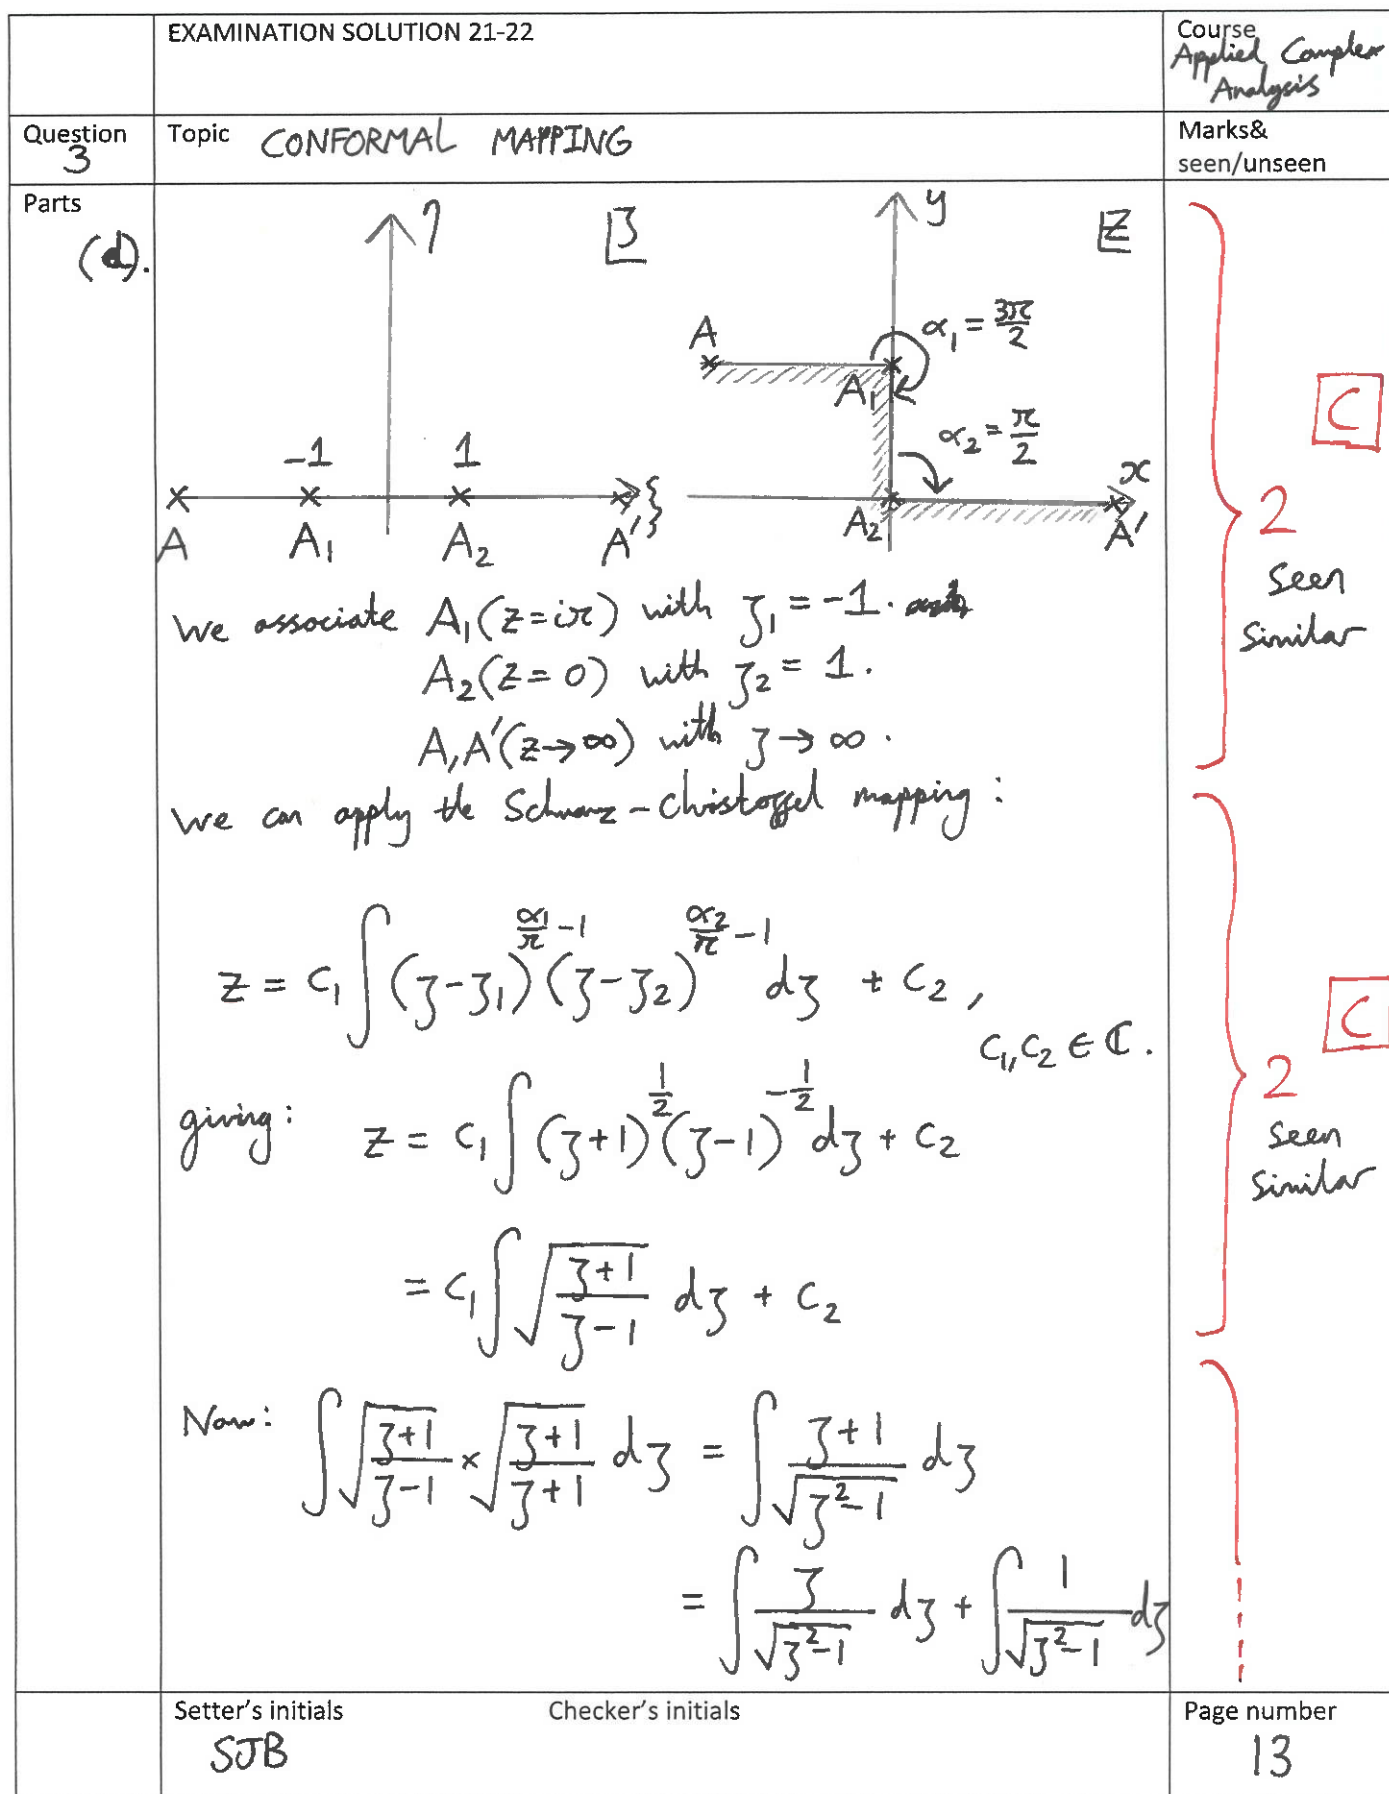 EXAMINATION SOLUTION 21-22
Course
Applied Complex
Analysis
Question
3
Topic CONFORMAL MAPPING
Marks&
seen/unseen
Parts
(d).
η
ζ
y
z
α₁ = 3π/2
A
A₁
C
-1 1
α₂ = π/2
x
ξ
A A₁ A₂ A'
A₂ A'
2
seen
similar
We associate A₁(z=iπ) with ζ₁ = -1.
A₂(z=0) with ζ₂ = 1.
A,A'(z→∞) with ζ→∞.
We can apply the Schwarz-Christoffel mapping:
z = c₁∫(ζ-ζ₁)^(α₁/π -1) (ζ-ζ₂)^(α₂/π -1) dζ + c₂,
c₁,c₂ ∈ ℂ.
C
2
seen
similar
giving: z = c₁∫(ζ+1)^(1/2) (ζ-1)^(-1/2) dζ + c₂
= c₁∫√((ζ+1)/(ζ-1)) dζ + c₂
Now: ∫√((ζ+1)/(ζ-1)) × √((ζ+1)/(ζ+1)) dζ = ∫(ζ+1)/√(ζ²-1) dζ
= ∫ζ/√(ζ²-1) dζ + ∫1/√(ζ²-1) dζ
Setter's initials
SJB
Checker's initials
Page number
13